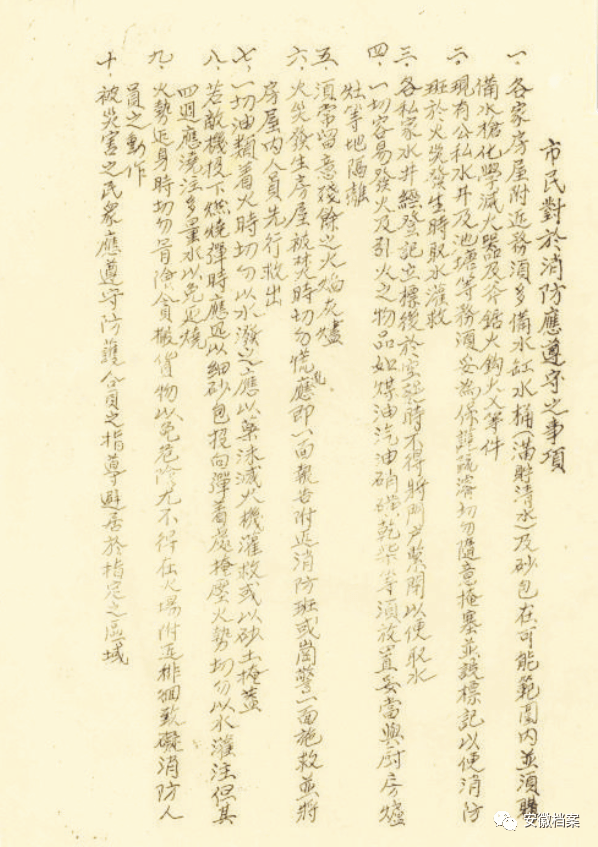 市民對於消防應遵守之事項
一、各家房屋附近務須多備水缸水桶(滿貯清水)及砂包在可能範圍內並須購
備水槍化學滅火器及斧鋸火鉤火叉等件
二、現有公私水井及池塘等務須妥為保護疏濬切勿隨意掩塞並設標記以便消防
班於火災發生時取水灌救
三、各私家水井經登記立標後於空襲時不得將門戶緊閉以便取水
四、一切容易發火及引火之物品如煤油汽油硝磺乾柴等須放置妥當與廚房爐
灶等地隔離
五、須常留意殘餘之火焰灰燼
六、火災發生房屋被焚時切勿慌亂應即一面報告附近消防班或崗警一面施救並將
房屋內人員先行救出
七、一切油類着火時切勿以水潑之應以藥沫滅火機灌救或以砂土掩蓋
八、若敵機投下燃燒彈時應迅以細砂包投向彈着處掩壓火勢切勿以水灌注但其
四週應澆注多量水以免延燒
九、火勢近身時切勿冒險貪搬貨物以免危險尤不得在火場附近排徊致礙消防人
員之動作
十、被災害之民眾應遵守防護人員之指導避居於指定之區域
安徽档案